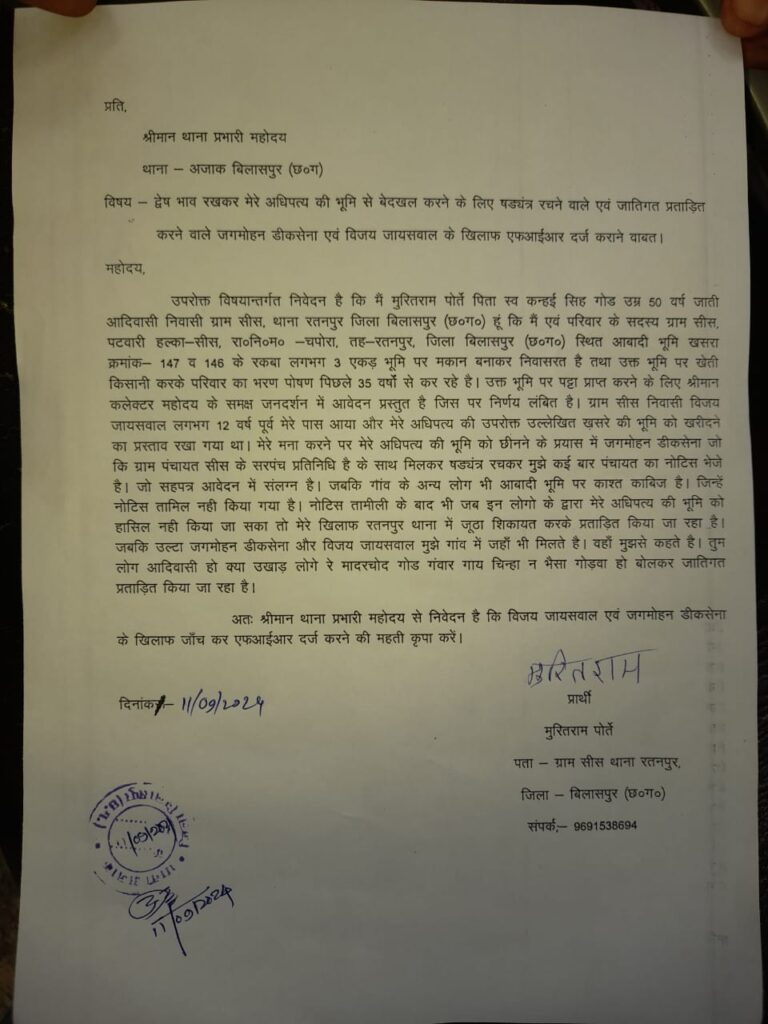 प्रति,
श्रीमान थाना प्रभारी महोदय
थाना – अजाक बिलासपुर (छ०ग)
विषय – द्वेष भाव रखकर मेरे अधिपत्य की भूमि से बेदखल करने के लिए षड्यंत्र रचने वाले एवं जातिगत प्रताड़ित
करने वाले जगमोहन डीकसेना एवं विजय जायसवाल के खिलाफ एफआईआर दर्ज कराने वाबत।
महोदय,
उपरोक्त विषयान्तर्गत निवेदन है कि मैं मुरितराम पोर्ते पिता स्व कन्हई सिह गोड उम्र 50 वर्ष जाती
आदिवासी निवासी ग्राम सीस, थाना रतनपुर जिला बिलासपुर (छ०ग०) हूं कि मैं एवं परिवार के सदस्य ग्राम सीस,
पटवारी हल्का–सीस, रा०नि०म० –चपोरा, तह–रतनपुर, जिला बिलासपुर (छ०ग०) स्थित आबादी भूमि खसरा
क्रमांक– 147 व 146 के रकबा लगभग 3 एकड़ भूमि पर मकान बनाकर निवासरत है तथा उक्त भूमि पर खेती
किसानी करके परिवार का भरण पोषण पिछले 35 वर्षो से कर रहे है। उक्त भूमि पर पट्टा प्राप्त करने के लिए श्रीमान
कलेक्टर महोदय के समक्ष जनदर्शन में आवेदन प्रस्तुत है जिस पर निर्णय लंबित है। ग्राम सीस निवासी विजय
जायसवाल लगभग 12 वर्ष पूर्व मेरे पास आया और मेरे अधिपत्य की उपरोक्त उल्लेखित खसरे की भूमि को खरीदने
का प्रस्ताव रखा गया था। मेरे मना करने पर मेरे अधिपत्य की भूमि को छीनने के प्रयास में जगमोहन डीकसेना जो
कि ग्राम पंचायत सीस के सरपंच प्रतिनिधि है के साथ मिलकर षड्यंत्र रचकर मुझे कई बार पंचायत का नोटिस भेजे
है। जो सहपत्र आवेदन में संलग्न है। जबकि गांव के अन्य लोग भी आबादी भूमि पर काश्त काबिज है। जिन्हें
नोटिस तामिल नही किया गया है। नोटिस तामीली के बाद भी जब इन लोगो के द्वारा मेरे अधिपत्य की भूमि को
हासिल नही किया जा सका तो मेरे खिलाफ रतनपुर थाना में जूठा शिकायत करके प्रताड़ित किया जा रहा है।
जबकि उल्टा जगमोहन डीकसेना और विजय जायसवाल मुझे गांव में जहाँ भी मिलते है। वहाँ मुझसे कहते है। तुम
लोग आदिवासी हो क्या उखाड़ लोगे रे मादरचोद गोड गंवार गाय चिन्हा न भैसा गोड़वा हो बोलकर जातिगत
प्रताड़ित किया जा रहा है।
अतः श्रीमान थाना प्रभारी महोदय से निवेदन है कि विजय जायसवाल एवं जगमोहन डीकसेना
के खिलाफ जाँच कर एफआईआर दर्ज करने की महती कृपा करें।
मुरितराम
दिनांक– 11/09/2024
प्रार्थी
मुरितराम पोर्ते
पता – ग्राम सीस थाना रतनपुर,
जिला – बिलासपुर (छ०ग०)
संपर्क,– 9691538694
11/09/2024
11/09/2024